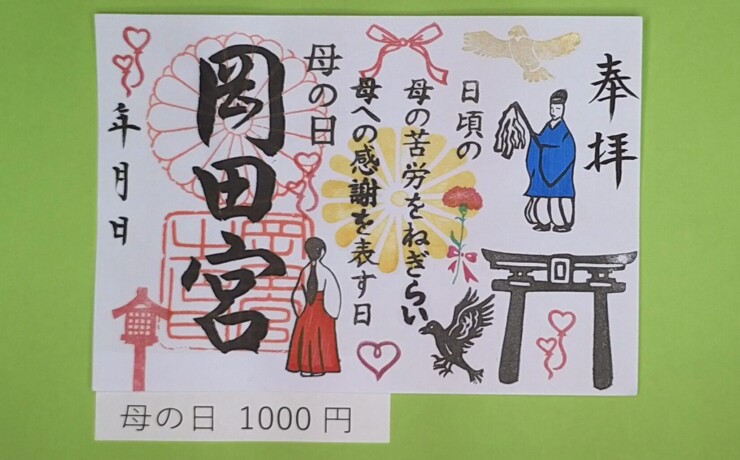 奉拝
日頃の
母の苦労をねぎらい
母への感謝を表す日
母の日
岡田宮
年月日
母の日 1000円